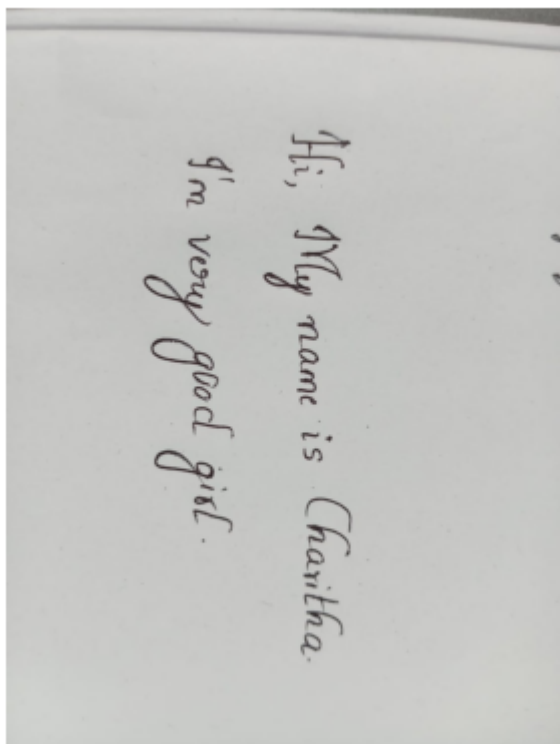 Hi, My name is Charitha.
I'm very good girl.